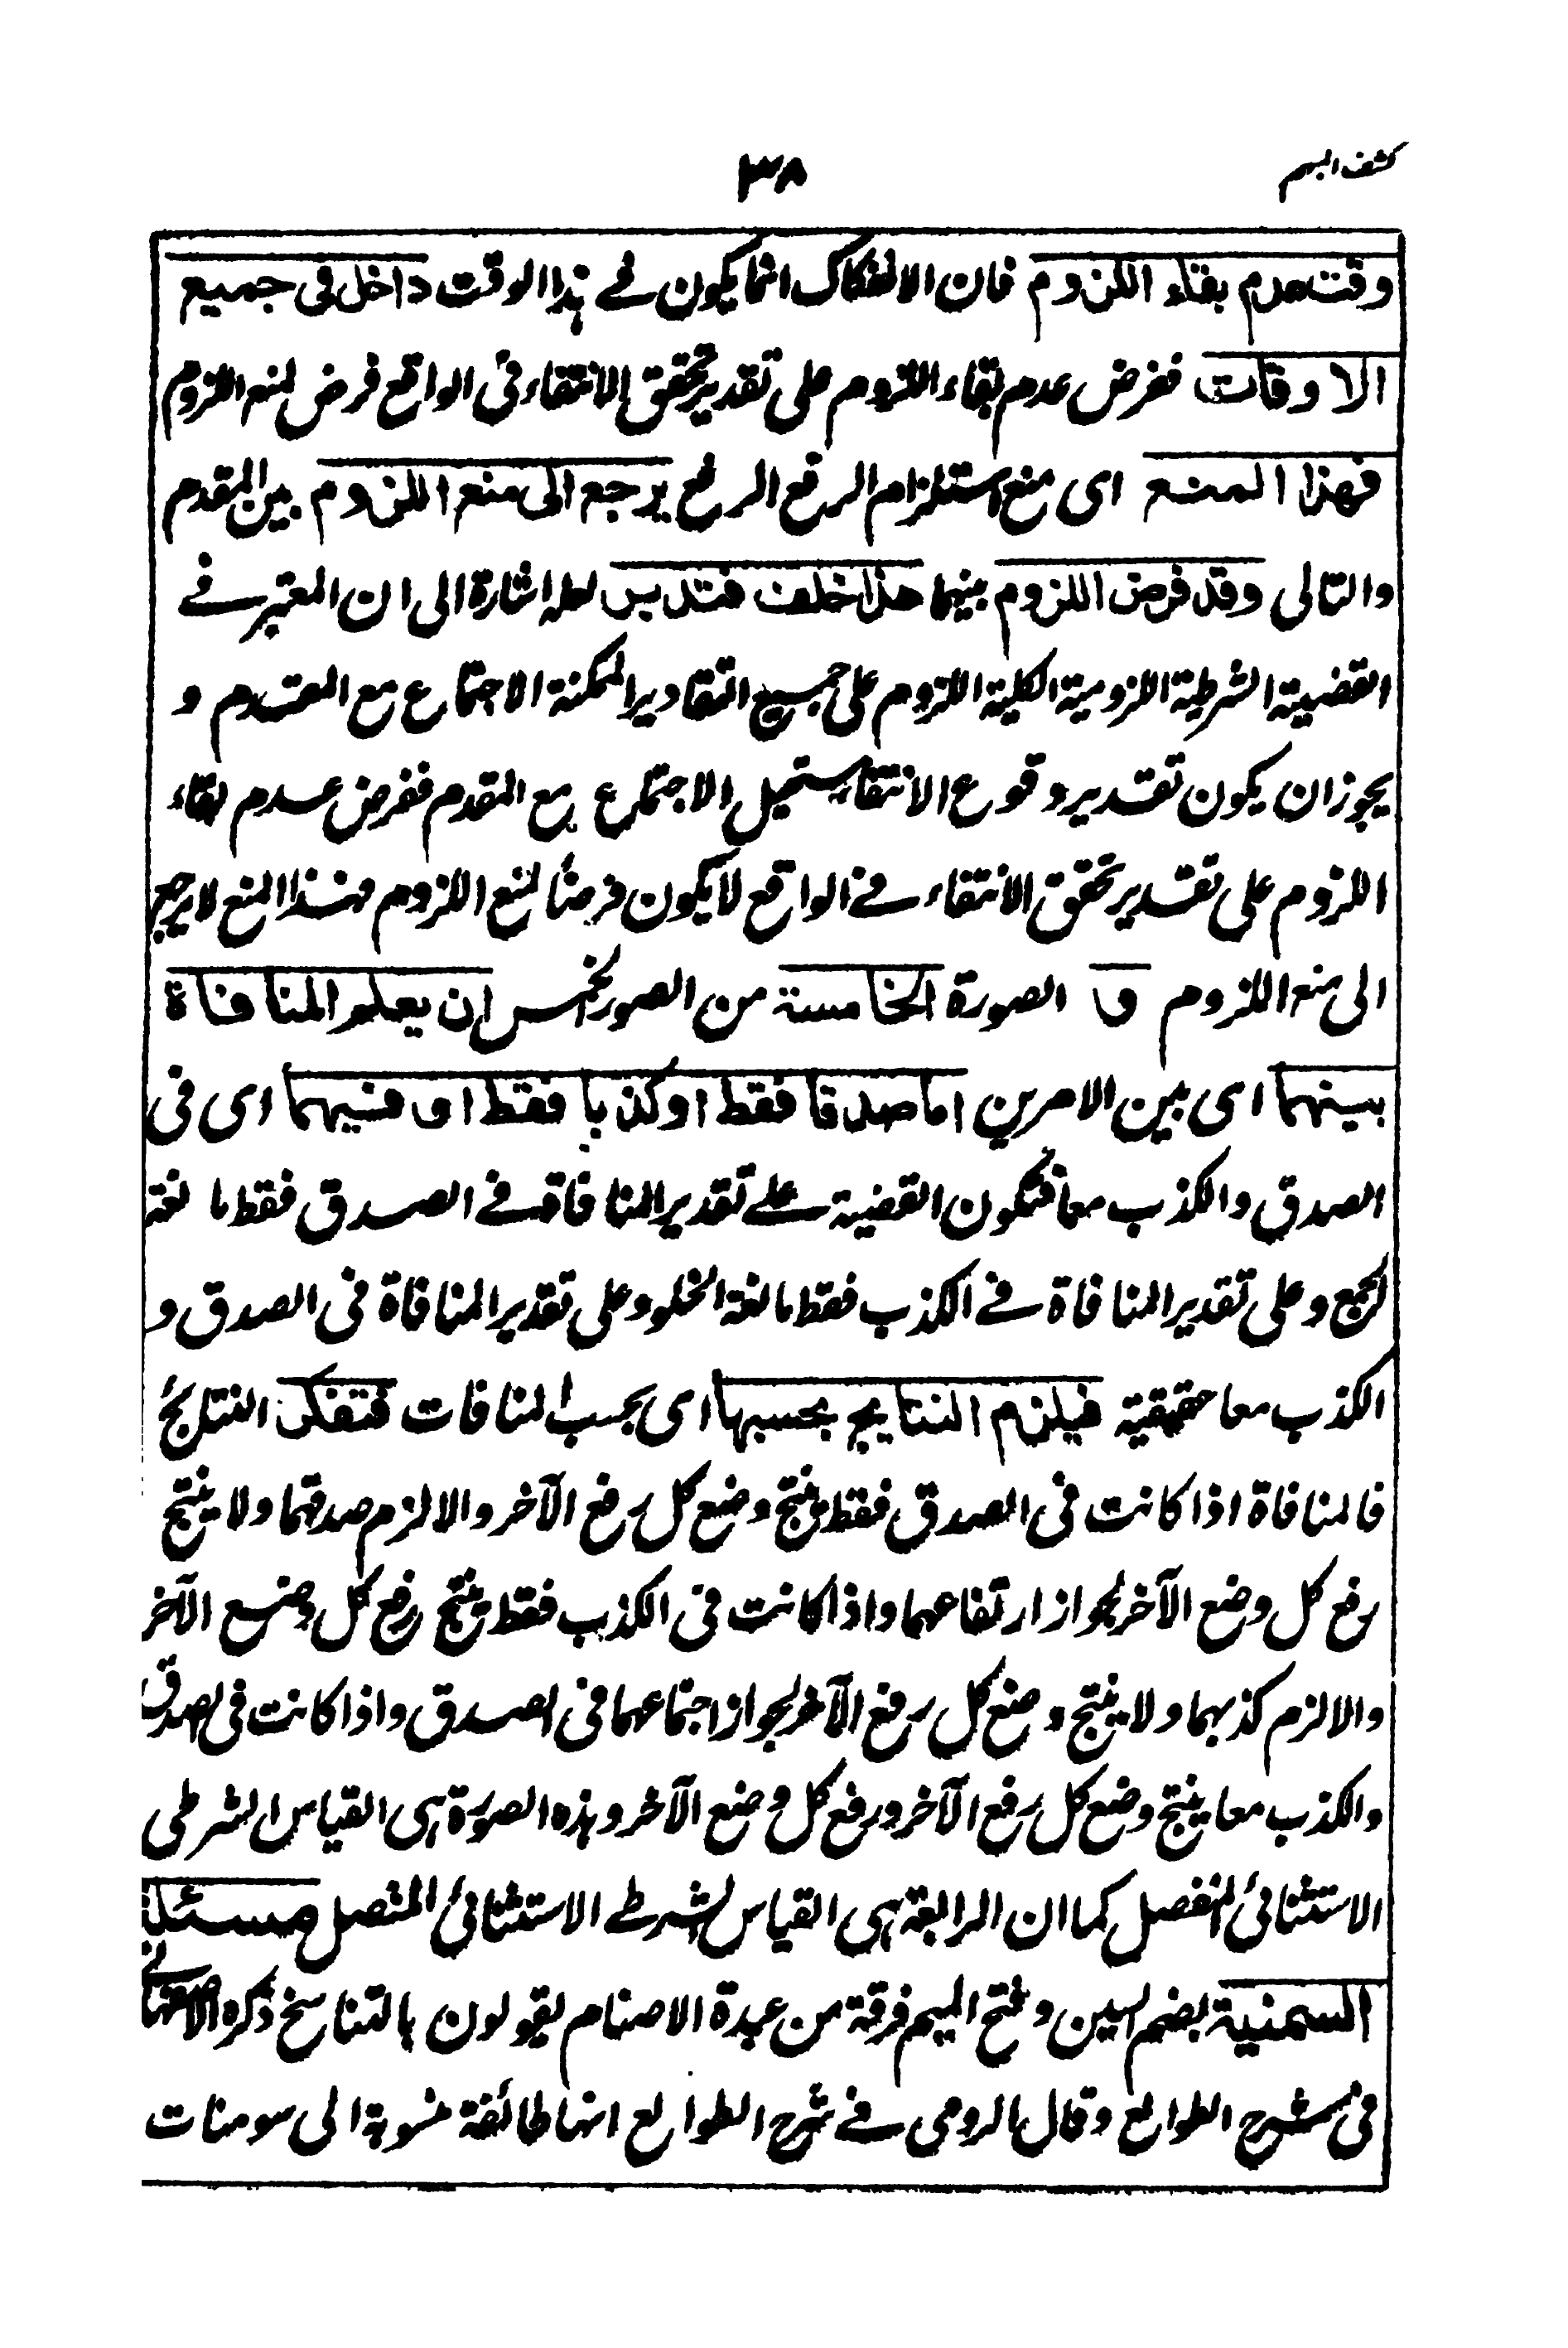 كشف المبهم
٣٨
وقت عدم بقاء اللزوم فان الانفكاك انما يكون في هذا الوقت داخل في جميع
الاوقات ففرض عدم بقاء اللزوم على تقدير تحقق الانتفاء في الواقع فرض لمنع اللزوم
فهذا المنع اى منع استلزام الرفع الرفع يرجع الى منع اللزوم بين المقدم
والتالى وقد فرض اللزوم بينهما هذا خلف فتدبر لعله اشارة الى ان المعتبر في
القضية الشرطية اللزومية الكلية اللزوم على جميع التقادير الممكنة الاجتماع مع المقدم و
يجوز ان يكون تقدير وقوع الانتفاء مستحيل الاجتماع مع المقدم ففرض عدم بقاء
اللزوم على تقدير تحقق الانتفاء في الواقع لا يكون فرضا لمنع اللزوم فهذا المنع لا يرجع
الى منع اللزوم و الصورة الخامسة من الصور الخمس ان يعلم المنافاة
بينهما اى بين الامرين اما صدقا فقط او كذبا فقط او فيهما اى في
الصدق والكذب معا فتكون القضية على تقدير المنافاة في الصدق فقط مانعة
الجمع وعلى تقدير المنافاة في الكذب فقط مانعة الخلو وعلى تقدير المنافاة في الصدق و
الكذب معا حقيقية فيلزم النتايج بحسبها اى بحسب المنافات فتفكر النتايج
فالمنافاة اذا كانت في الصدق فقط ينتج وضع كل رفع الآخر والا لزم صدقهما ولا ينتج
رفع كل وضع الآخر لجواز ارتفاعهما واذا كانت في الكذب فقط ينتج رفع كل وضع الآخر
والا لزم كذبهما ولا ينتج وضع كل رفع الآخر لجواز اجتماعهما في الصدق واذا كانت في الصدق
والكذب معا ينتج وضع كل رفع الآخر ورفع كل وضع الآخر وهذه الصورة هي القياس الشرطي
الاستثنائي المنفصل كما ان الرابعة هي القياس الشرطي الاستثنائي المتصل مسئلة
السمنية بضم السين وفتح الميم فرقة من عبدة الاصنام يقولون بالتناسخ ذكره الاصفهاني
في شرح الطوالع وقال الرومي في شرح الطوالع انها طائفة منسوبة الى سومنات